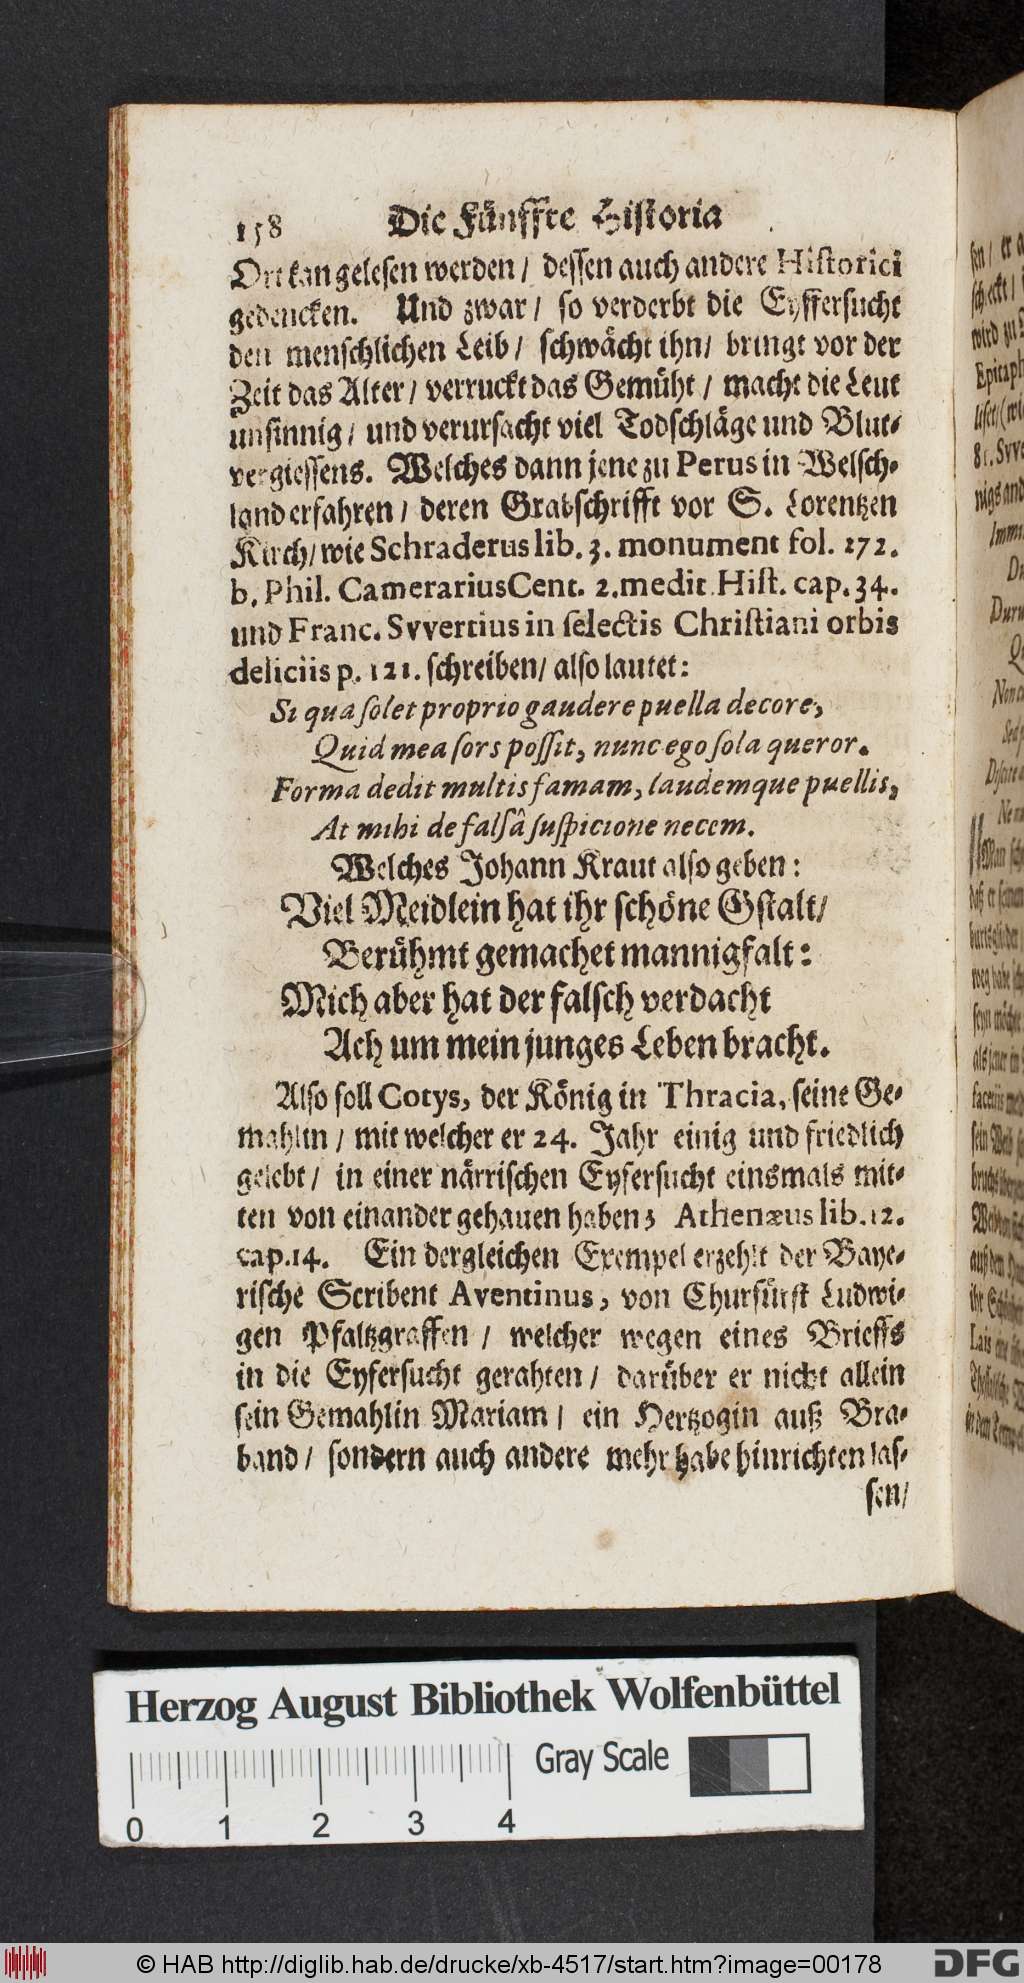 158 Die Fünffte Historia
Ort kan gelesen werden / dessen auch andere Historici
gedencken. Und zwar / so verderbt die Eyffersucht
den menschlichen Leib / schwächt ihn / bringt vor der
Zeit das Alter / verruckt das Gemüht / macht die Leut
unsinnig / und verursacht viel Todschläge und Blut-
vergiessens. Welches dann jene zu Perus in Welsch-
land erfahren / deren Grabschrifft vor S. Lorentzen
Kirch / wie Schraderus lib. 3. monument fol. 172.
b. Phil. Camerarius Cent. 2. medit. Hist. cap. 34.
und Franc. Svvertius in selectis Christiani orbis
deliciis p. 121. schreiben / also lautet:
Si qua solet proprio gaudere puella decore,
Quid mea sors possit, nunc ego sola queror.
Forma dedit multis famam, laudemque puellis,
At mihi de falsâ suspicione necem.
Welches Johann Kraut also geben:
Viel Meidlein hat ihr schöne Gstalt /
Berühmt gemachet mannigfalt:
Mich aber hat der falsch verdacht
Ach um mein junges Leben bracht.
Also soll Cotys, der König in Thracia, seine Ge-
mahlin / mit welcher er 24. Jahr einig und friedlich
gelebt / in einer närrischen Eyfersucht einsmals mit-
ten von einander gehauen haben; Athenæus lib. 12.
cap. 14. Ein dergleichen Exempel erzehlt der Baye-
rische Scribent Aventinus, von Churfürst Ludwi-
gen Pfaltzgraffen / welcher wegen eines Brieffs
in die Eyfersucht gerahten / darüber er nicht allein
sein Gemahlin Mariam / ein Hertzogin auß Bra-
band / sondern auch andere mehr habe hinrichten las-
sen /
Herzog August Bibliothek Wolfenbüttel
Gray Scale
0 1 2 3 4
© HAB http://diglib.hab.de/drucke/xb-4517/start.htm?image=00178
DFG